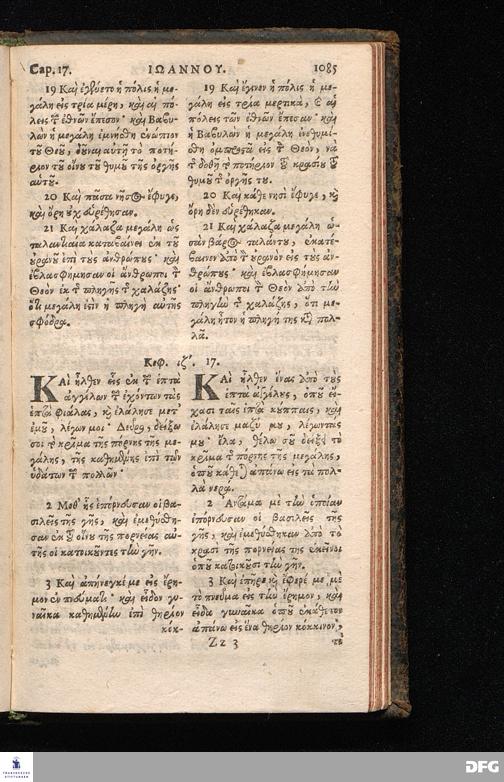 Cap. 17.
ΙΩΑΝΝΟΥ.
1085
19 Καὶ ἐγένετο ἡ πόλις ἡ με-
γάλη εἰς τρία μέρη, καὶ αἱ πό-
λεις τ̃ ἐθνῶν ἔπεσον· καὶ Βαβυ-
λὼν ἡ μεγάλη ἐμνήσθη ἐνώπιον
τοῦ Θεοῦ, δοῦναι αὐτῇ τὸ ποτή-
ριον τοῦ οἴνου τοῦ θυμοῦ τῆς ὀργῆς
αὐτοῦ.
20 Καὶ πᾶσα νῆσος ἔφυγε,
καὶ ὄρη οὐχ εὑρέθησαν.
21 Καὶ χάλαζα μεγάλη ὡς
ταλαντιαία καταβαίνει ἐκ τοῦ
οὐρανοῦ ἐπὶ τοὺς ἀνθρώπους· καὶ
ἐβλασφήμησαν οἱ ἄνθρωποι τ̃
Θεὸν ἐκ τ̃ πληγῆς τ̃ χαλάζης·
ὅτι μεγάλη ἐστὶν ἡ πληγὴ αὐτῆς
σφόδρα.
Κεφ. ιζʹ.
ΚΑὶ ἦλθεν εἷς ἐκ τ̃ ἑπτὰ
ἀγγέλων τ̃ ἐχόντων τὰς
ἑπτὰ φιάλας, καὶ ἐλάλησε μετ᾽
ἐμοῦ, λέγων μοι· Δεῦρο, δείξω
σοι τὸ κρῖμα τῆς πόρνης τῆς με-
γάλης, τῆς καθημένης ἐπὶ τῶν
ὑδάτων τ̃ πολλῶν·
2 Μεθ᾽ ἧς ἐπόρνευσαν οἱ βα-
σιλεῖς τῆς γῆς, καὶ ἐμεθύσθη-
σαν ἐκ τοῦ οἴνου τῆς πορνείας αὐ-
τῆς οἱ κατοικοῦντες τὴν γῆν.
3 Καὶ ἀπήνεγκέ με εἰς ἔρη-
μον ἐν πνεύματι· καὶ εἶδον γυ-
ναῖκα καθημένην ἐπὶ θηρίον
κόκ-
19 Καὶ ἔγινεν ἡ πόλις ἡ με-
γάλη εἰς τρία μερτικὰ, καὶ αἱ
πόλεις τῶν ἐθνῶν ἔπεσαν· καὶ
ἡ Βαβυλὼν ἡ μεγάλη ἐνθυμί-
θη ὀμπροστὰ εἰς τ̃ Θεὸν, νὰ
τ̃ δοθῇ τ̃ ποτήριον τοῦ κρασιοῦ τοῦ
θυμοῦ τ̃ ὀργῆς του.
20 Καὶ κάθε νησὶ ἔφυγε, καὶ
ὄρη δὲν εὑρέθηκαν.
21 Καὶ χάλαζα μεγάλη ὡ-
σὰν βάρος ταλάντου, ἐκατέ-
βαινεν ἀπὸ τ̃ οὐρανὸν εἰς τοὺς ἀν-
θρώπους· καὶ ἐβλασφήμησαν
οἱ ἄνθρωποι τ̃ Θεὸν ἀπὸ τὴν
πληγὴν τ̃ χαλάζης, ὅτι με-
γάλη ἦτον ἡ πληγή της καὶ πολ-
λά.
17.
ΚΑὶ ἦλθεν ἕνας ἀπὸ τοὺς
ἑπτὰ ἀγγέλους, ὁποῦ εἴ-
χασι ταῖς ἑπτὰ κούππαις, καὶ
ἐλάλησε μαζύ μου, λέγωντας
μου· Ἔλα, θέλω σοῦ δείξῃ τὸ
κρῖμα τ̃ πόρνης τῆς μεγάλης,
ὁποῦ κάθεται ἀπάνω εἰς τὰ πολ-
λὰ νερά.
2 Ἀντάμα μὲ τὴν ὁποίαν
ἐπόρνευσαν οἱ βασιλεῖς τῆς
γῆς, καὶ ἐμεθύσθηκαν ἀπὸ τὸ
κρασὶ τῆς πορνείας της ἐκεῖνοι
ὁποῦ κατοικοῦσι τὴν γῆν.
3 Καὶ ἐπῆρε καὶ ἔφερέ με μὲ
τὸ πνεῦμα εἰς τὴν ἔρημον, καὶ
εἶδα γυναῖκα ὁποῦ ἐκάθετον
ἀπάνω εἰς ἕνα θηρίον κόκκινον,
Zz 3
FRANCKESCHE
STIFTUNGEN
DFG